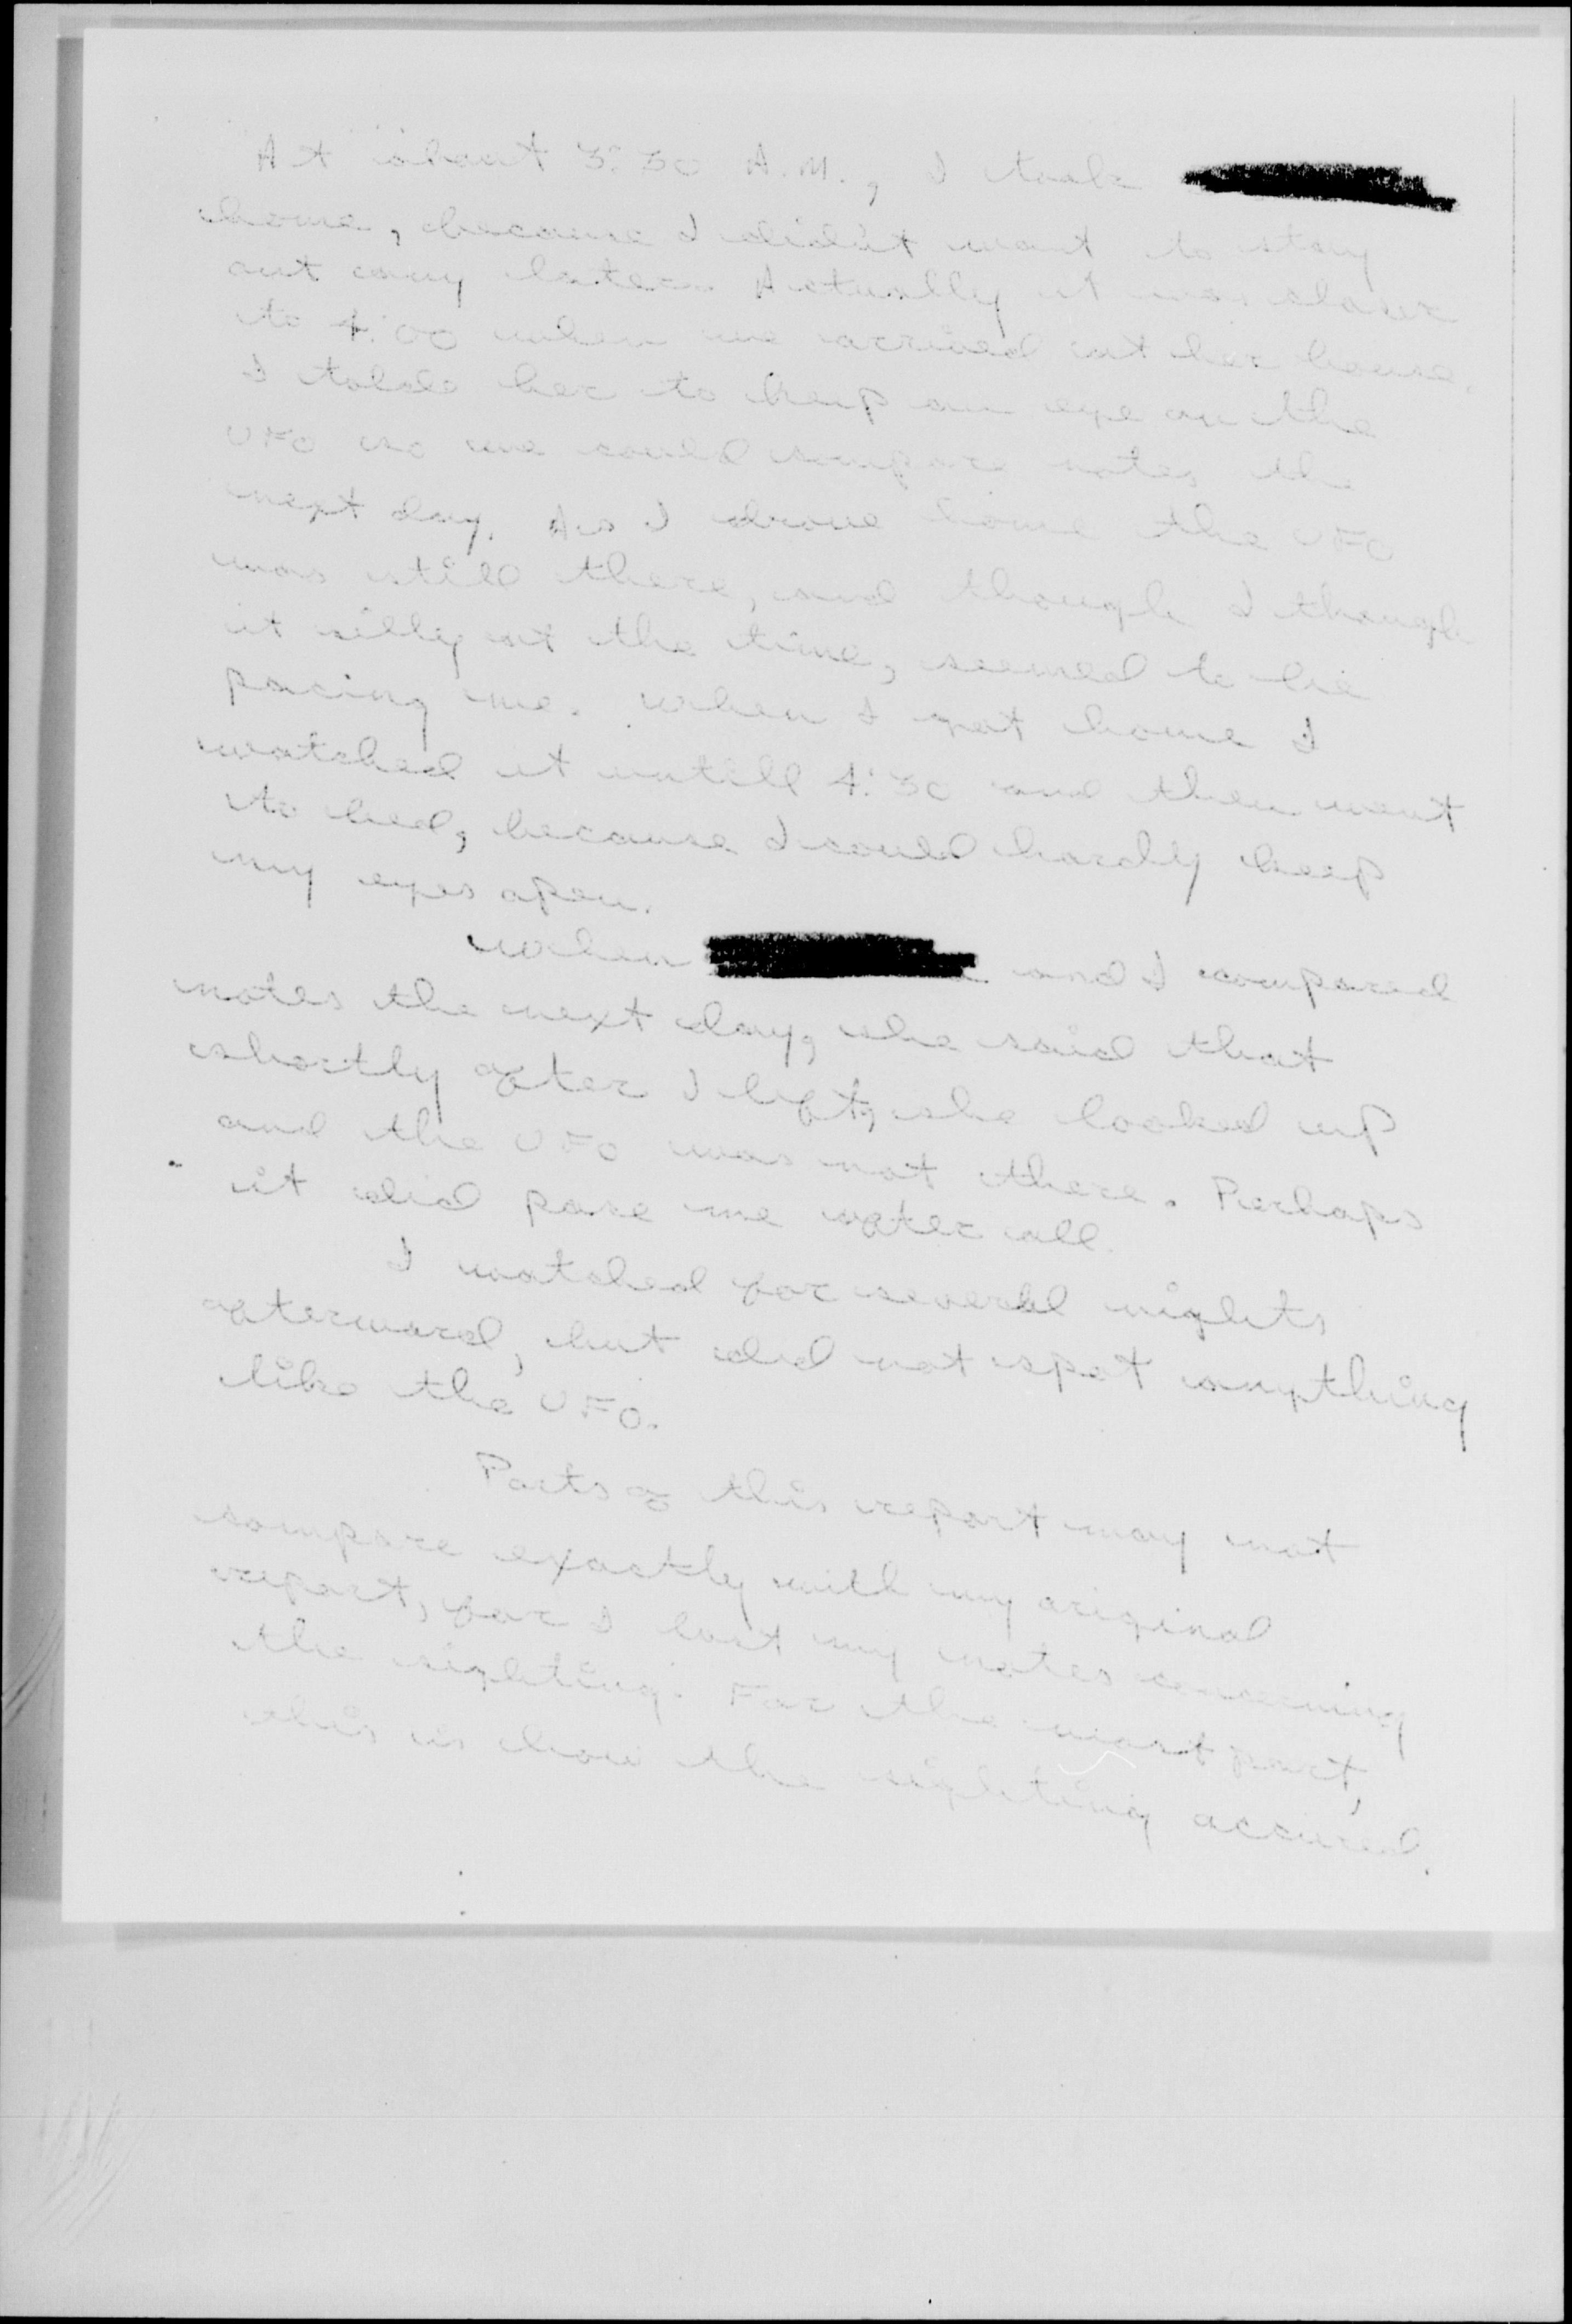 At about 3:30 A.M., I took
home, because I didn't want to stay
out any later. Actually it was closer
to 4:00 when we arrived at her house.
I tolde her to keep an eye on the
UFO so we could compare notes the
next day. As I drove home the UFO
was still there, and though I though
it silly at the time, seemed to be
pacing me. When I got home I
watched it untill 4:30 and then went
to bed, because I could hardly keep
my eyes open.
When and I compared
notes the next day, she said that
shortly after I left, she looked up
and the UFO was not there. Perhaps
it did pase me after all.
I watched for several nights
afterward, but did not spot anything
like the UFO.
Parts of this report may not
compare exactly with my original
report, for I lost my notes concerning
the sighting. For the most part,
this is how the sighting accured.